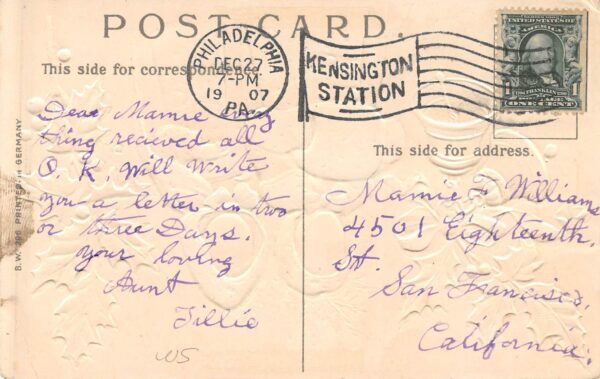 POST CARD.
This side for correspondence.
PHILADELPHIA
DEC 27
7-PM
1907
PA.
KENSINGTON
STATION
UNITED STATES
OF AMERICA
FRANKLIN
1 1
ONE CENT
Dear Mamie every
thing recieved all
O. K. Will Write
you a letter in two
or three Days.
your loving
Aunt
Tillie
WS
This side for address.
Mamie F Williams
4501 Eighteenth.
St.
San Francisco.
California.
B.W. 296 PRINTED IN GERMANY